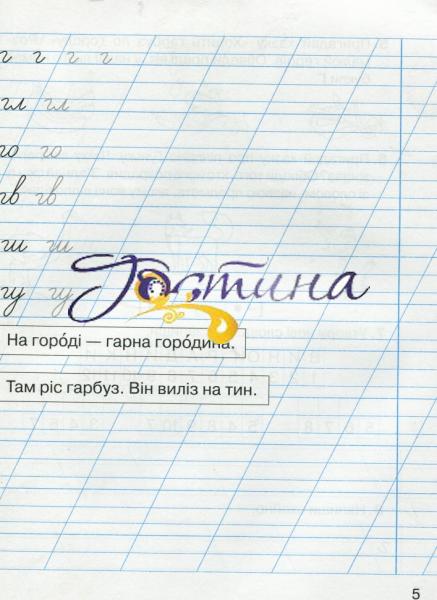 г г г г
гл гл
го го
гв гв
ги ги
Гостина
гу гу
На горо́ді — гарна горо́дина.
Там ріс гарбуз. Він виліз на тин.
5